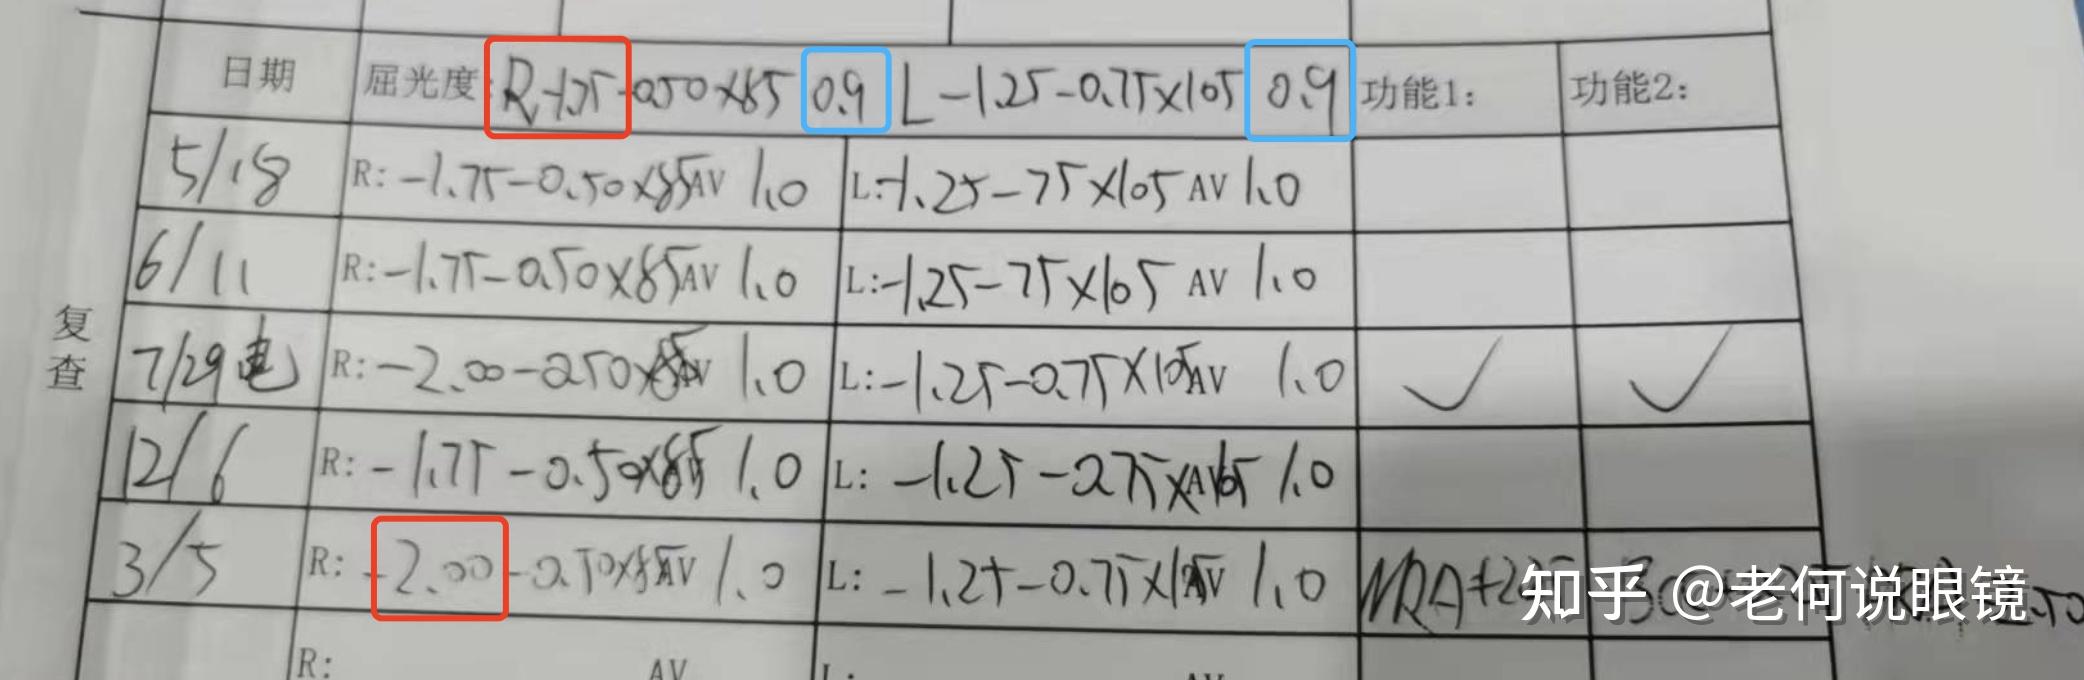 日期 屈光度: R -1.75-0.50×85 0.9 L -1.25-0.75×105 0.9 功能1: 功能2:
5/18 R: -1.75-0.50×85 AV 1.0 L: -1.25-75×105 AV 1.0
6/11 R: -1.75-0.50×85 AV 1.0 L: -1.25-75×105 AV 1.0
复查
7/29 电 R: -2.00-0.50×85 AV 1.0 L: -1.25-0.75×105 AV 1.0 ✓ ✓
12/6 R: -1.75-0.50×85 AV 1.0 L: -1.25-0.75×105 AV 1.0
3/5 R: -2.00-0.50×85 AV 1.0 L: -1.25-0.75×105 AV 1.0 NRA
知乎 @老何说眼镜
R: AV L: AV